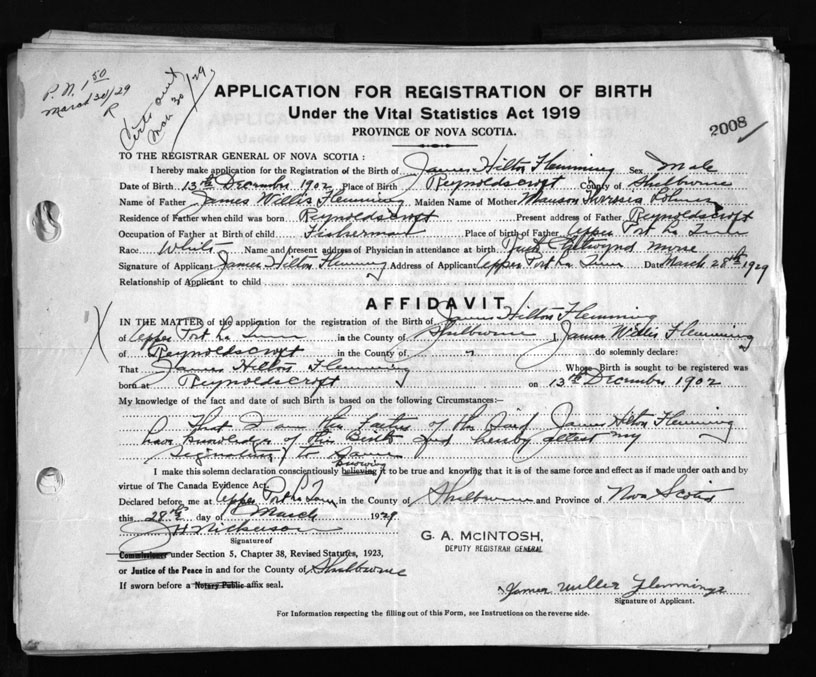 P. N. 1.50
March 30/29
Mar 30/29
APPLICATION FOR REGISTRATION OF BIRTH
Under the Vital Statistics Act 1919
PROVINCE OF NOVA SCOTIA.
2008
TO THE REGISTRAR GENERAL OF NOVA SCOTIA :
I hereby make application for the Registration of the Birth of James Hilton Flemming Sex Male
Date of Birth 13th December 1902 Place of Birth Reynoldscroft County of Shelburne
Name of Father James Willis Flemming Maiden Name of Mother Theresia
Residence of Father when child was born Reynoldscroft Present address of Father Reynoldscroft
Occupation of Father at Birth of child Fisherman Place of birth of Father Upper Port La Tour
Race White Name and present address of Physician in attendance at birth
Signature of Applicant James Hilton Flemming Address of Applicant Upper Port La Tour Date March 28th 1929
Relationship of Applicant to child
AFFIDAVIT
IN THE MATTER of the application for the registration of the Birth of James Hilton Flemming
of Upper Port La Tour in the County of Shelburne I, James Willis Flemming
of Reynoldscroft in the County of " do solemnly declare:
That James Hilton Flemming Whose Birth is sought to be registered was
born at Reynoldscroft on 13th December 1902
My knowledge of the fact and date of such Birth is based on the following Circumstances:—
That I am the Father of the Said James Hilton Flemming
have knowledge of this Birth and hereby attest my
Signature to Same
I make this solemn declaration conscientiously believing it to be true and knowing that it is of the same force and effect as if made under oath and by
virtue of The Canada Evidence Act.
Declared before me at Upper Port La Tour in the County of Shelburne and Province of Nova Scotia
this 28th day of March 1929
J H Nickerson
Signature of
Commissioner under Section 5, Chapter 38, Revised Statutes, 1923,
or Justice of the Peace in and for the County of Shelburne
If sworn before a Notary Public affix seal.
G. A. McINTOSH,
DEPUTY REGISTRAR GENERAL
x James Flemming
Signature of Applicant.
For Information respecting the filling out of this Form, see Instructions on the reverse side.